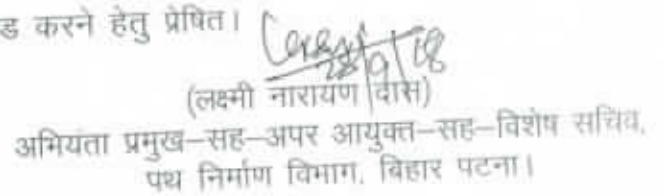 ड करने हेतु प्रेषित।
28/9/18
(लक्ष्मी नारायण दास)
अभियंता प्रमुख-सह-अपर आयुक्त-सह-विशेष सचिव,
पथ निर्माण विभाग, बिहार पटना।